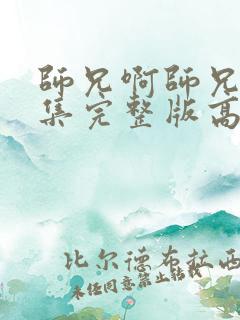 師兄啊師兄
集完整版高
比尔德布拉西
未经同意禁止转载